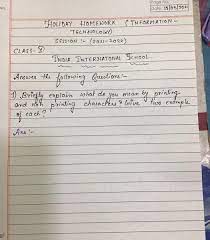 HOLIDAY HOMEWORK (INFORMATION-
TECHNOLOGY)
SESSION :- (2021-2022)
CLASS- 8
INDIA INTERNATIONAL SCHOOL
Answer the following Questions:-
1) Briefly explain what do you mean by printing
and non printing characters? Give two example
of each?
Ans:-